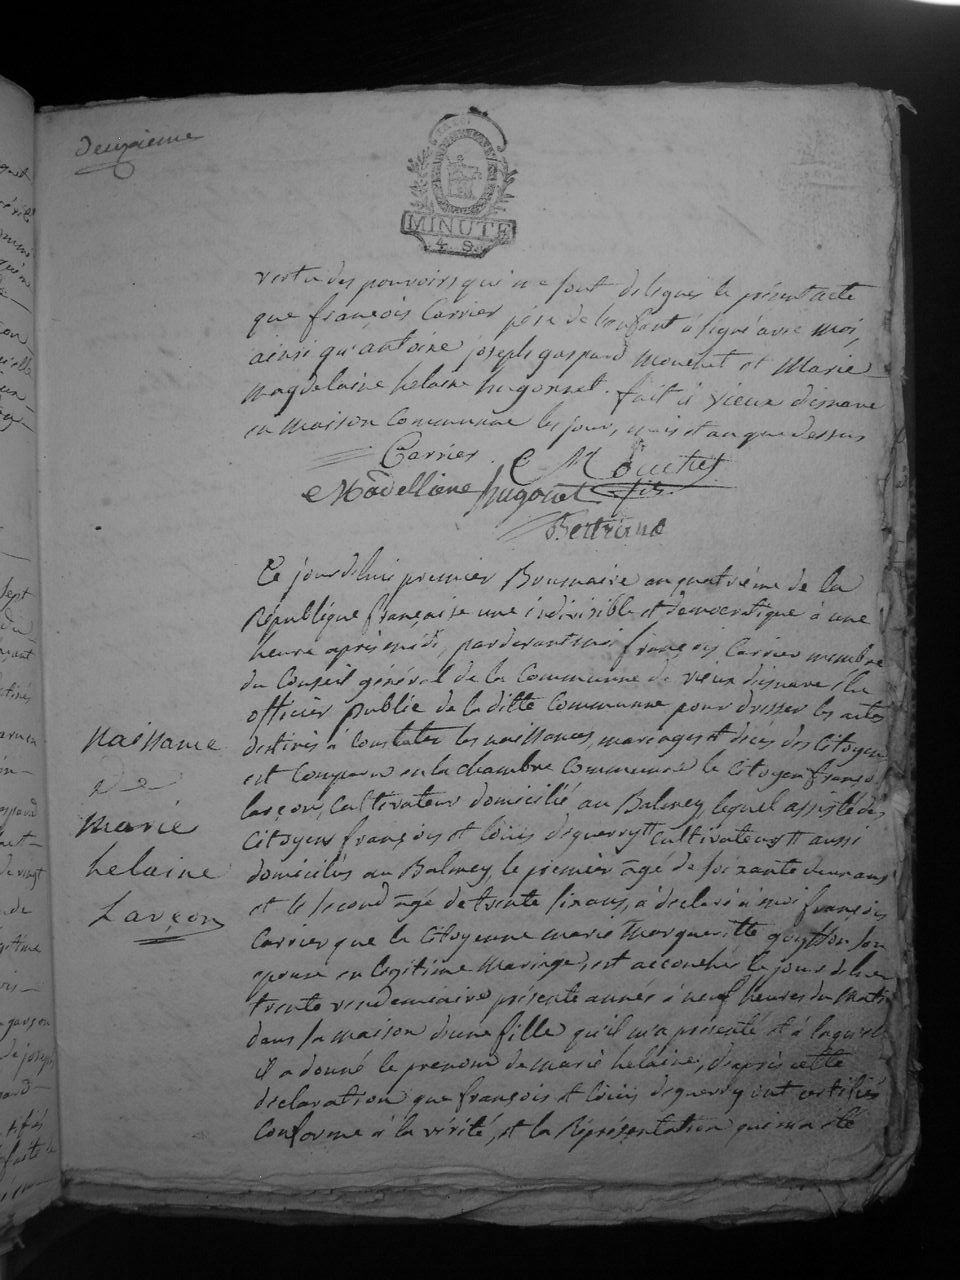 deuxieme
MINUTE
4. S.
vertu des pouvoirs qui me sont délégués le présent acte
que françois Carrier père de l'enfant a signé avec moi,
ainsi qu'antoine joseph gaspard Mouchet et Marie
magdelaine helaine hugonnet. fait à vieux disnave
en maison Commune les jour, mois et an que dessus
Carrier. Mouchet
Madellaine hugonet fils
Bertrand
Ce jourdhui premier Brumaire an quatrième de la
République française une indivisible et démocratique à une
heure après midi, pardevant moi françois Carrier membre
du Conseil général de la Commune de vieux disnave élu
officier publée de la ditte Commune pour dresser les actes
destinés à Constater les naissances, mariages et décès des Citoyens
est Comparu en la chambre Commune le Citoyen françois
larçon, Cultivateur domicilié au Balmey, lequel assisté des
Citoyens françois et louis deguerry Cultivateurs aussi
domiciliés au Balmey, le premier âgé de soixante deux ans
et le second âgé de trente six ans, a déclaré à moi françois
Carrier que la Citoyenne marie Margueritte son
epouse en légitime Mariage, est accouchée le jour d'hier
trente vendemiaire présente année à neuf heures du Matin
dans sa maison d'une fille qu'il m'a présenté et à laquelle
il a donné le prenom de marie helaine, d'après cette
declaration que françois et louis deguerry ont certifiés
Conforme à la vérité, et la Représentation qui m'a été
naissance
de
marie
helaine
Larçon